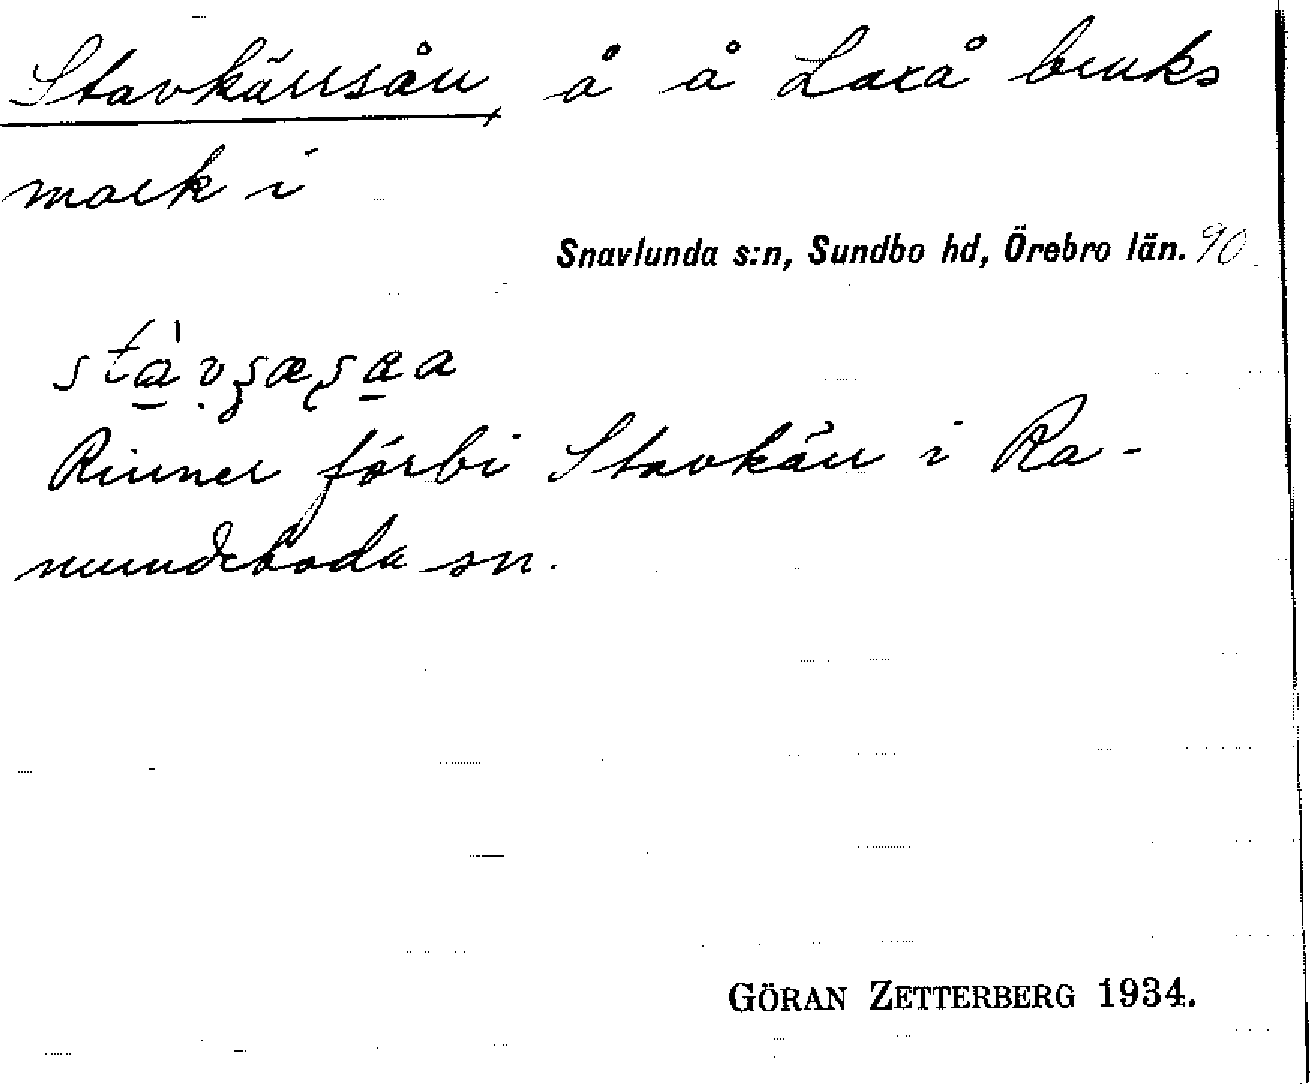 Stavkärrsån, å å Laxå bruks
mark i
Snavlunda s:n, Sundbo hd, Örebro län. 90
Rinner förbi Stavkärr i Ra-
mundeboda sn.
GÖRAN ZETTERBERG 1934.